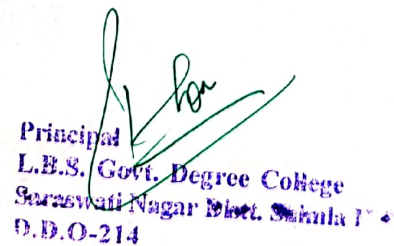 Principal
L.B.S. Govt. Degree College
Saraswati Nagar Distt. Shimla
D.D.O-214